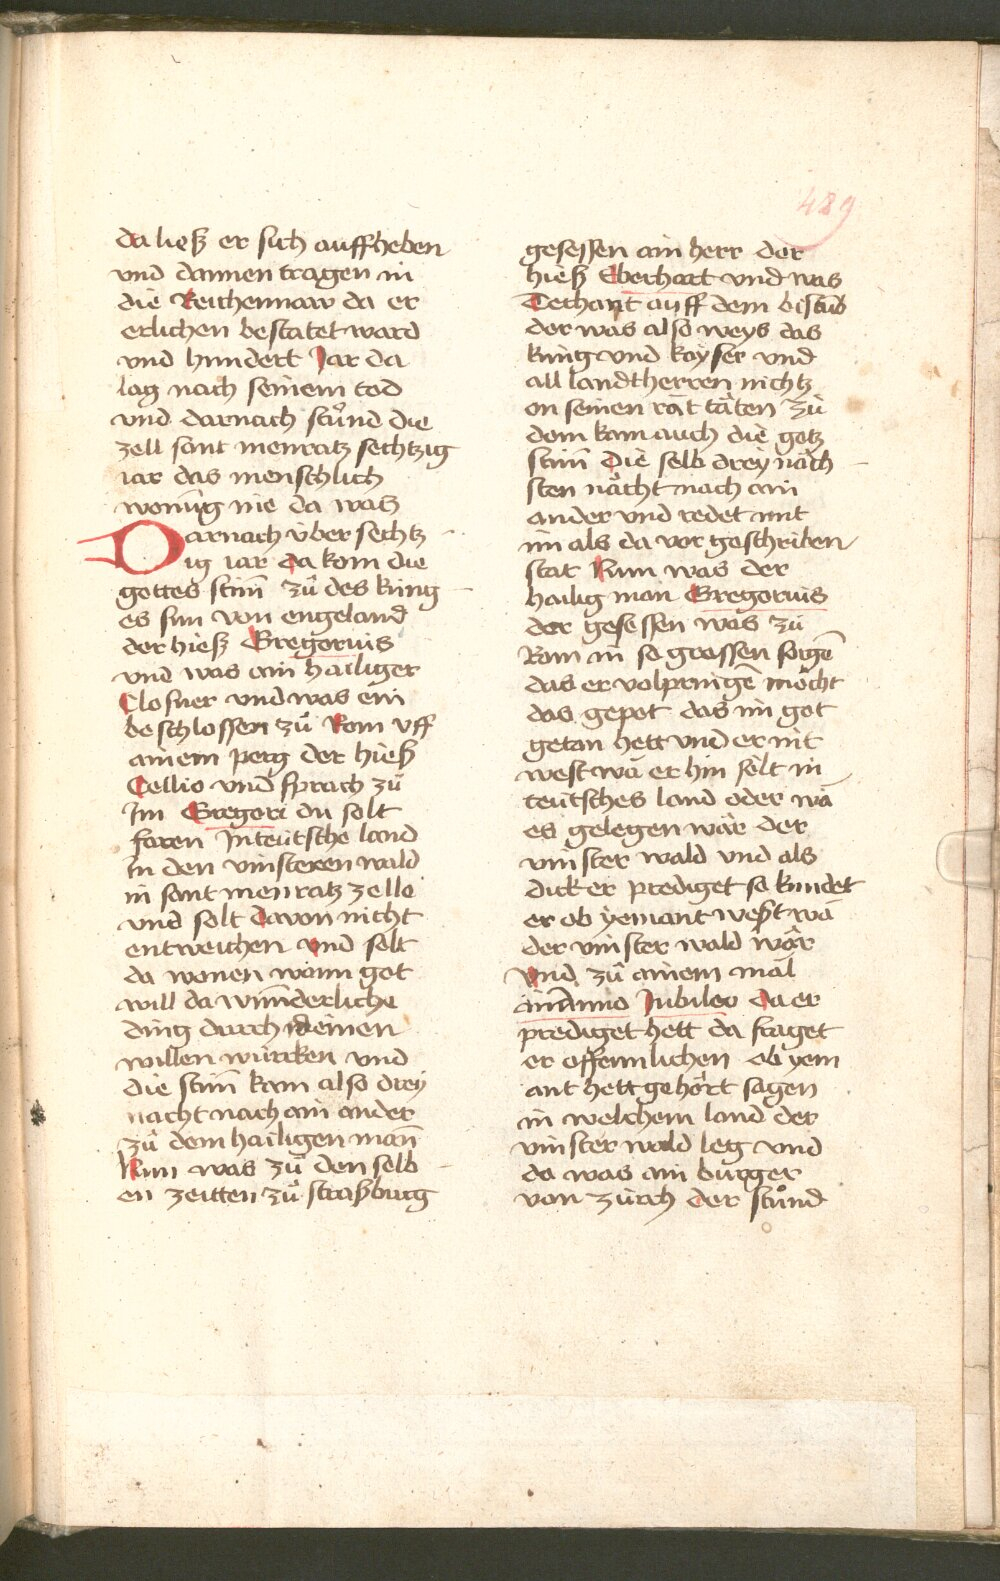 489
da ließ er sich auffheben
vnd dannen tragen in
die Reichennaw da er
erlichen bestatet ward
vnd hundert Jar da
lag nach seinem tod
vnd darnach stůnd die
zell sant menratz sechtzig
iar das menschlich
wonūg nie da was
Darnach über sechtz
ig iar da kom die
gottes stim̄ zů des küng
es sun von engeland
der hieß Gregorius
vnd was ain hailiger
Closner vnd was ein
beschlossen zů Rom vff
ainem perg der hieß
Cellio vnd sprach zů
Im Gregori du solt
faren In teütsche land
In den vinsteren wald
in sant menratz zelle
vnd solt davon nicht
entweichen vnd solt
da wonen wann got
will da wunderliche
ding durch deinen
willen würcken vnd
die stim̄ kam also drey
nacht nach ain ander
zů dem hailigen man̄
Nun was zů den selb
en zeitten zů straßburg
gesessen ain herr der
hieß Eberhart vnd was
Techant auff dem bistub
der was also weys das
küng vnd kayser vnd
all landtherren nichtz
on seinen rät täten zů
dem kam auch die gotz
stim̄ Die selb drey näch
sten nächt nach ain
ander vnd redet mit
im als da vor geschriben
stat Nun was der
hailig man Gregorius
der gesessen was zů
Rom in so grossen sorgē
das er volpringē möcht
das gepot das im got
getan hett vnd er nit
west wa er hin solt in
teütsches land oder wa
es gelegen wär der
vinster wald vnd als
dick er prediget so kundet
er ob yemant west wa
der vinster wald wär
Vnd zů ainem mäl
in Anno Jubileo Da er
prediget hett da fraget
er offennlichen ob yem
ant hett gehört sagen
in welchem land der
vinster wald leg vnd
da was ain burger
von zürch der stůnd